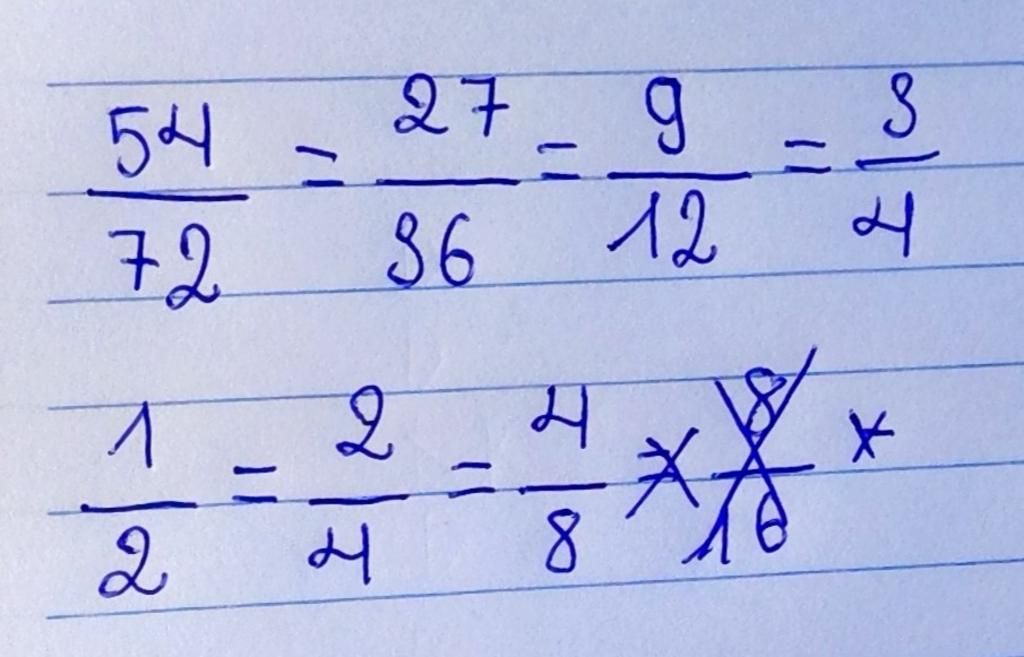 54/72 = 27/36 = 9/12 = 3/4
1/2 = 2/4 = 4/8 = 8/16 *